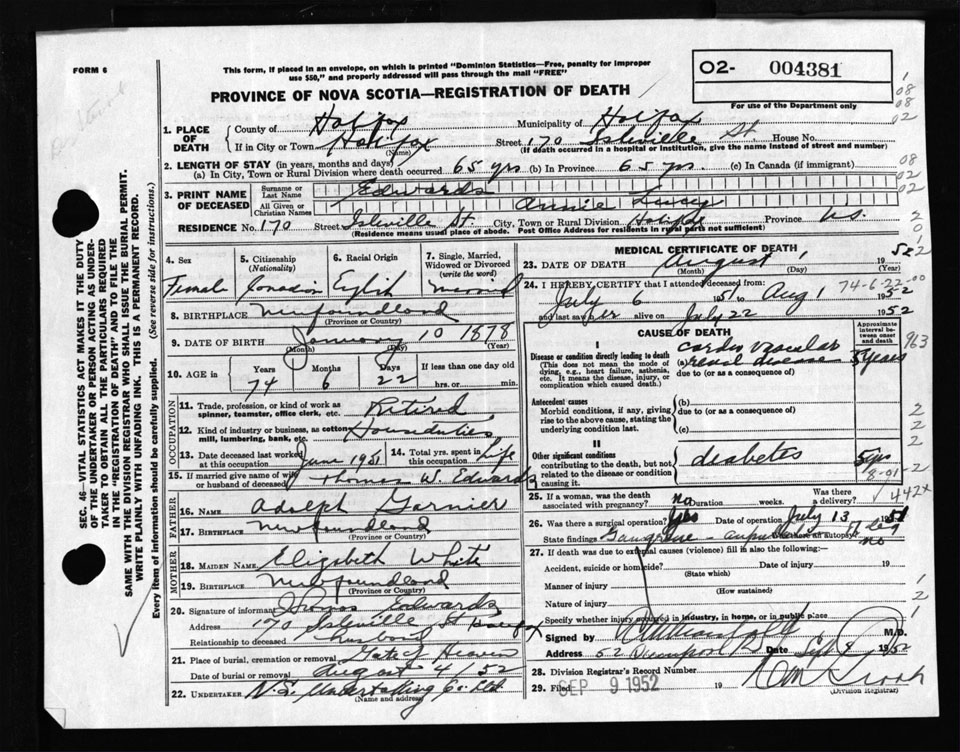 FORM 6
This form, if placed in an envelope, on which is printed "Dominion Statistics—Free, penalty for improper
use $50," and properly addressed will pass through the mail "FREE"
PROVINCE OF NOVA SCOTIA—REGISTRATION OF DEATH
O2- 004381
For use of the Department only
1. PLACE OF DEATH
County of Halifax Municipality of Halifax
If in City or Town Halifax Street 170 Isleville St House No.
(Name) (If death occurred in a hospital or Institution, give the name instead of street and number)
2. LENGTH OF STAY (in years, months and days)
(a) In City, Town or Rural Division where death occurred 65 yrs (b) In Province 65 yrs. (c) In Canada (if immigrant)
3. PRINT NAME OF DECEASED
Surname or Last Name Edwards
All Given or Christian Names Annie Lucy
RESIDENCE No. 170 Street Isleville St. City, Town or Rural Division Halifax Province N.S.
(Residence means usual place of abode. Post Office Address for residents in rural parts not sufficient)
4. Sex
Female
5. Citizenship
(Nationality)
Canadian
6. Racial Origin
English
7. Single, Married, Widowed or Divorced
(write the word)
Married
8. BIRTHPLACE Newfoundland
(Province or Country)
9. DATE OF BIRTH January 10 1878
(Month) (Day) (Year)
10. AGE
Years Months Days If less than one day old
74 6 22 hrs. or min.
OCCUPATION
11. Trade, profession, or kind of work as
spinner, teamster, office clerk, etc. Retired
12. Kind of industry or business, as cotton
mill, lumbering, bank, etc. Houseduties
13. Date deceased last worked
at this occupation June 1951
14. Total yrs. spent in
this occupation Life
15. If married give name of wife
or husband of deceased Thomas W. Edwards
FATHER
16. Name Adolph Garnier
17. BIRTHPLACE Newfoundland
(Province or Country)
MOTHER
18. MAIDEN NAME Elizabeth White
19. BIRTHPLACE Newfoundland
(Province or Country)
20. Signature of informant Thomas Edwards
Address 170 Isleville St Halifax
Relationship to deceased husband
21. Place of burial, cremation or removal Gate of Heaven
Date of burial or removal August 4/52
22. UNDERTAKER N.S. Undertaking Co. Ltd.
(Name and address)
MEDICAL CERTIFICATE OF DEATH
23. DATE OF DEATH August 1 1952
(Month) (Day) (Year)
74-6-22-00
24. I HEREBY CERTIFY that I attended deceased from:
July 6 1951 to Aug 1 1952
and last saw her alive on July 22 1952
CAUSE OF DEATH
Approximate interval between onset and death
I
Disease or condition directly leading to death
(This does not mean the mode of
dying, e.g., heart failure, asthenia,
etc. It means the disease, injury, or
complication which caused death.)
(a) Cardio vascular renal disease 5 years
due to (or as a consequence of)
Antecedent causes
Morbid conditions, if any, giving
rise to the above cause, stating the
underlying condition last.
(b)
due to (or as a consequence of)
(c)
II
Other significant conditions
contributing to the death, but not
related to the disease or condition
causing it.
diabetes 5 yrs
25. If a woman, was the death
associated with pregnancy? no Duration weeks. Was there a delivery?
442x
26. Was there a surgical operation? Yes Date of operation July 13 1951
State findings Gangrene - amputation of leg Was there an autopsy? no
27. If death was due to external causes (violence) fill in also the following:—
Accident, suicide or homicide? Date of injury 19
(State which)
Manner of injury
(How sustained)
Nature of injury
Specify whether injury occurred in industry, in home, or in public place
Signed by M.D.
Address 52 Date Sept 9 1952
28. Division Registrar's Record Number
29. Filed SEP 9 1952 19
(Division Registrar)
SEC. 46—VITAL STATISTICS ACT MAKES IT THE DUTY
OF THE UNDERTAKER OR PERSON ACTING AS UNDER-
TAKER TO OBTAIN ALL THE PARTICULARS REQUIRED
IN THE "REGISTRATION OF DEATH" AND TO FILE THE
SAME WITH THE DIVISION REGISTRAR WHO SHALL ISSUE THE BURIAL PERMIT.
WRITE PLAINLY WITH UNFADING INK. THIS IS A PERMANENT RECORD.
Every item of information should be carefully supplied. (See reverse side for instructions.)